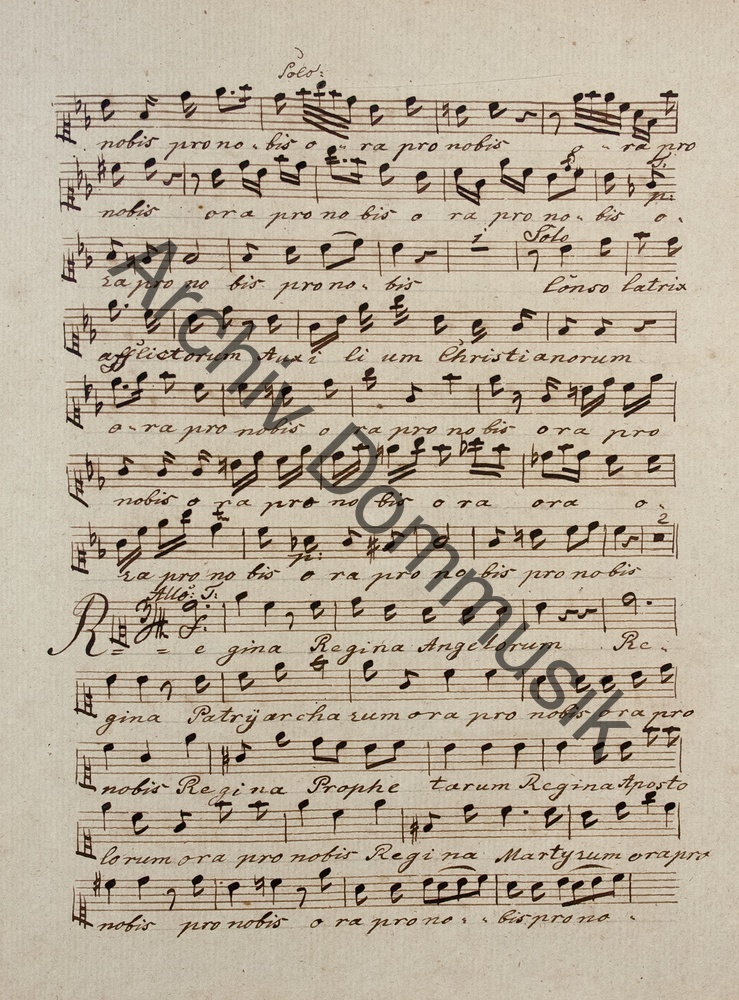 Solo:
nobis pro no - bis o - ra pro nobis - ra pro
nobis ora pro no bis o ra pro no - bis o -
ra pro no bis pro no - bis Conso latrix
1 Solo
afflictorum Auxi li um Christianorum
o - ra pro nobis o ra pro no bis ora pro
nobis o ra pro no bis o ra ora o -
2
ra pro no bis o ra pro no bis pro nobis
p:
All.o T:
f:
Re gina Regina Angelorum Re -
gina Patryarcha rum ora pro nobis ora pro
nobis Regina Prophe tarum Regina Aposto
lorum ora pro nobis Regina Martyrum ora pro
nobis pro nobis o ra pro no - - bis pro no -
Archiv Dommusik